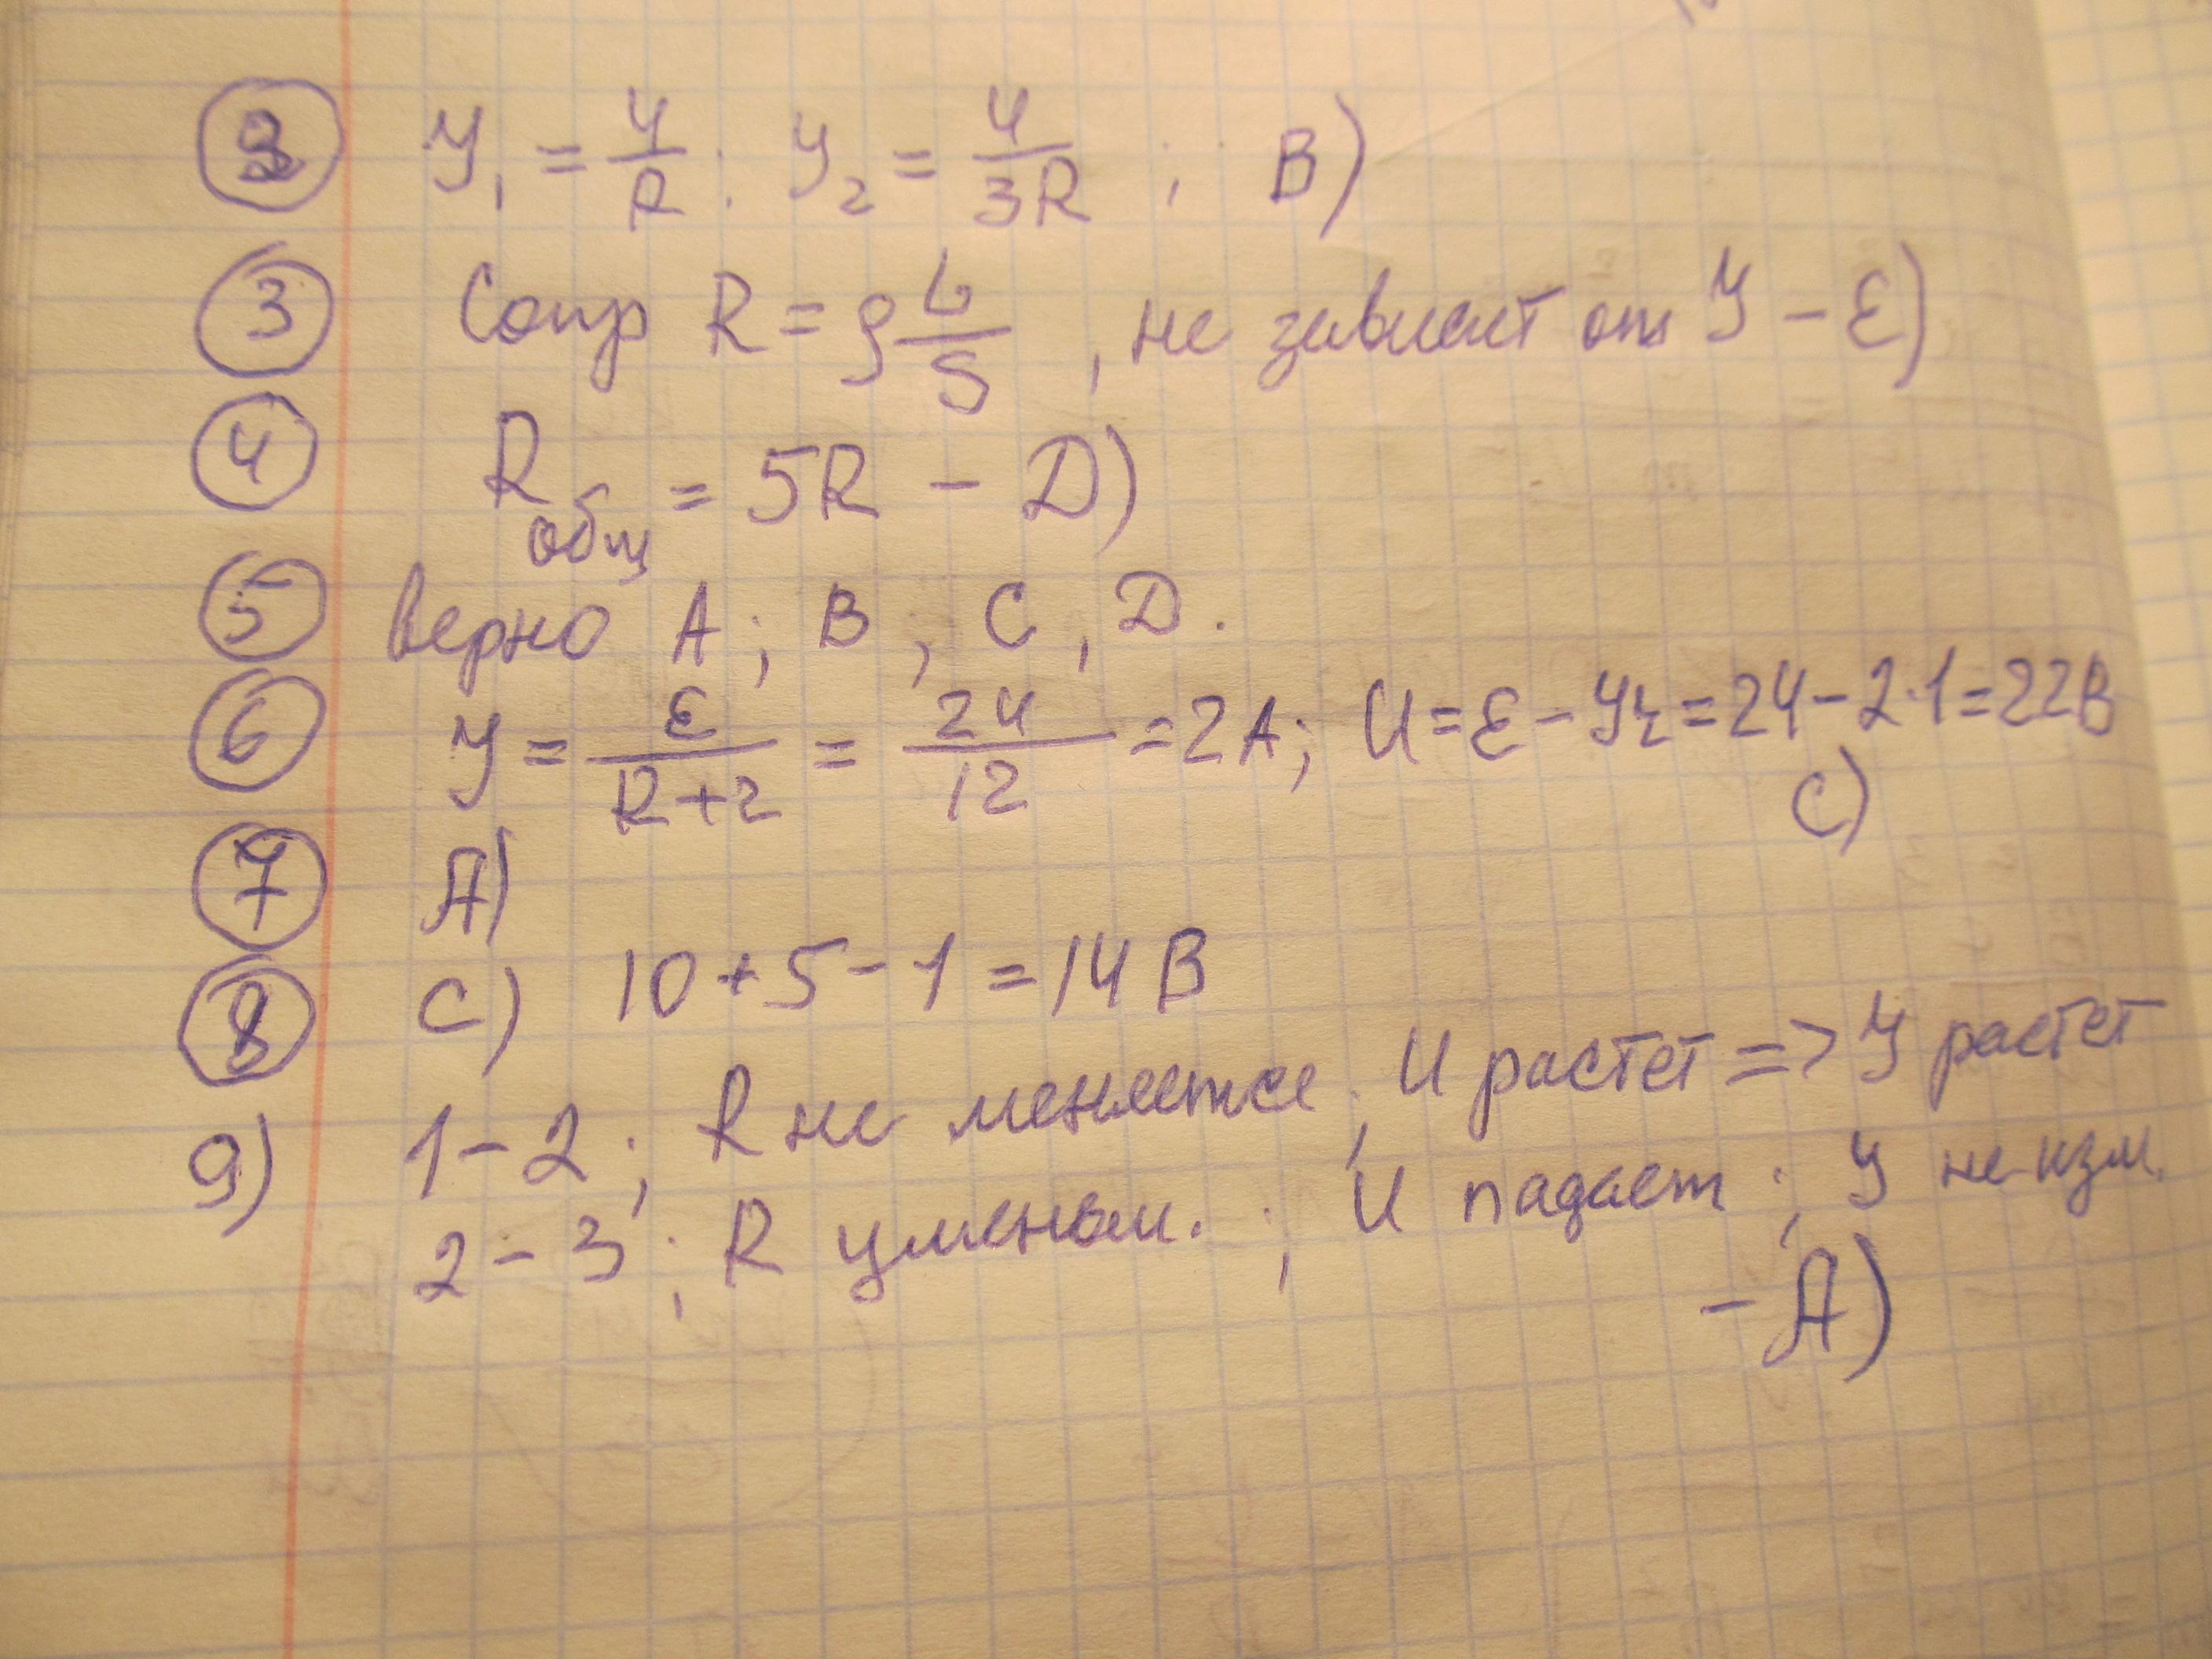 2 У₁ = 4/R ; У₂ = 4/3R ; В)
3 Сопр R = ρ L/S , не зависит от У – Е)
4 R общ = 5R – D)
5 верно А ; В , С , D.
6 У = ε/R+r = 24/12 = 2А; U = ε – Уr = 24 – 2·1 = 22В
С)
7 А)
8 С) 10 + 5 – 1 = 14 В
9) 1 – 2 ; R не меняется ; U растет => У растет
2 – 3 ; R уменьш. ; U падает ; У не изм.
– А)